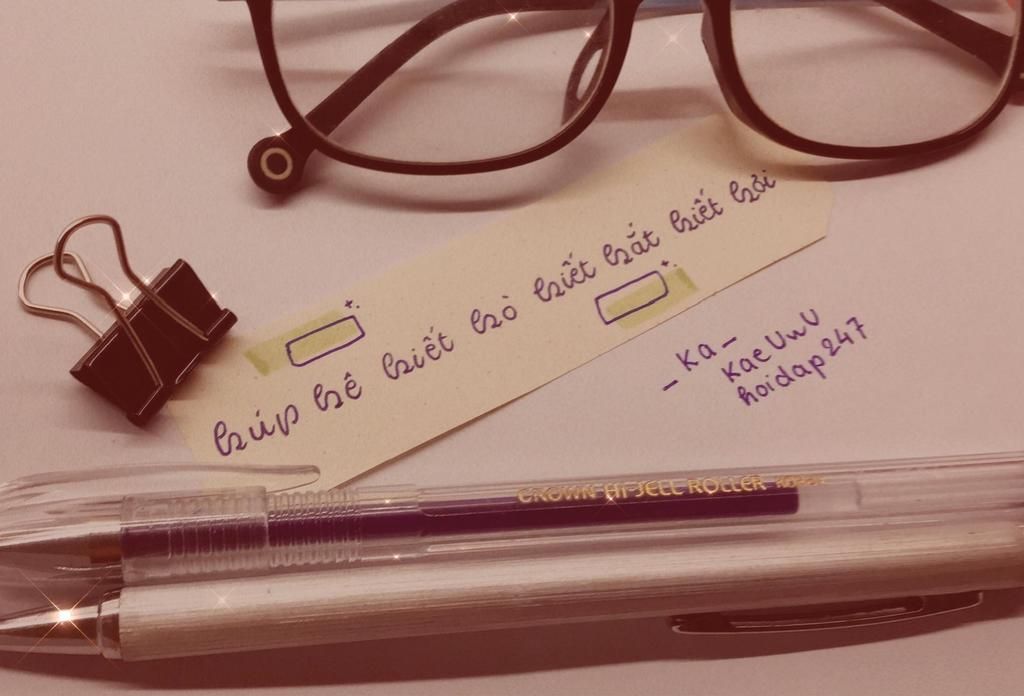 búp bê biết bò biết bắt biết bơi
_ Ka _
KaeUwU
hoidap247
CROWN HI-JELL ROLLER